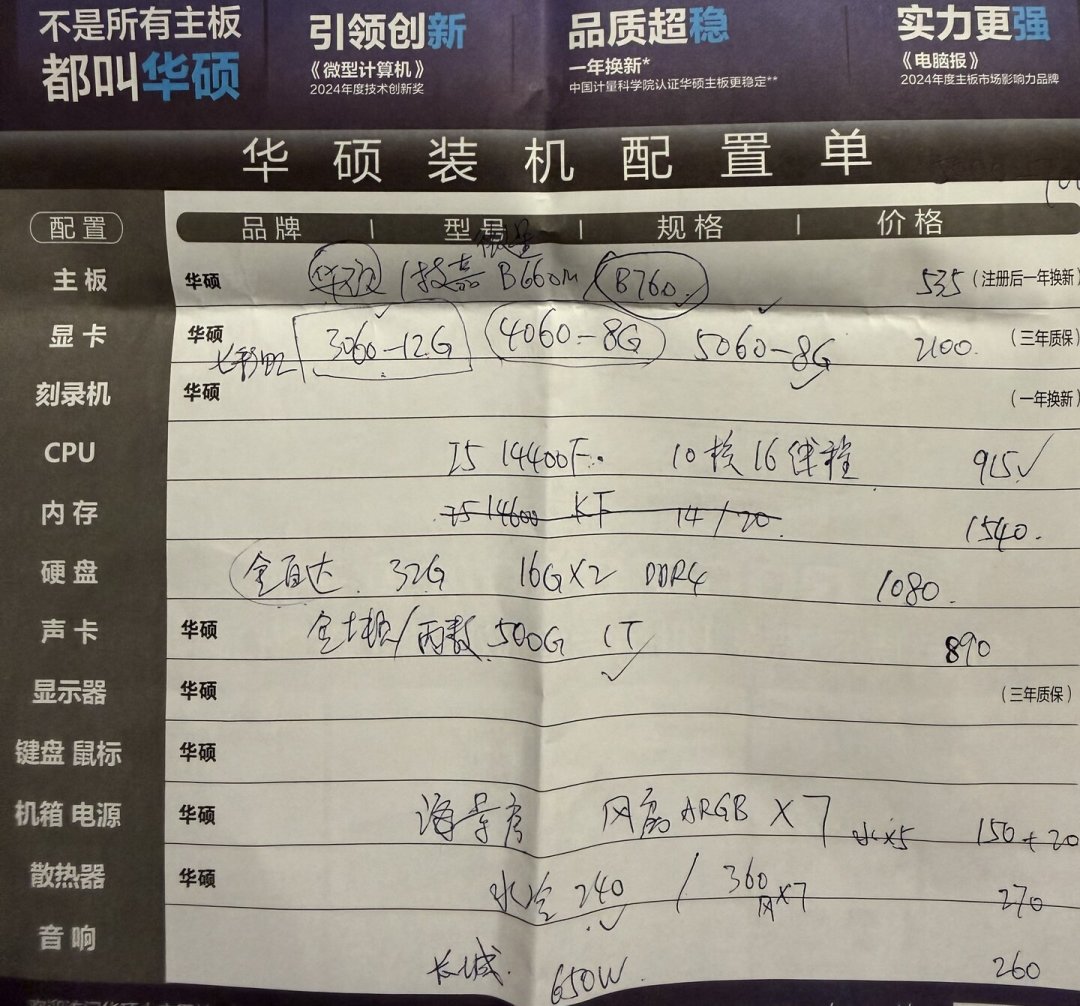 不是所有主板
都叫华硕
引领创新
《微型计算机》
2024年度技术创新奖
品质超稳
一年换新*
中国计量科学院认证华硕主板更稳定**
实力更强
《电脑报》
2024年度主板市场影响力品牌
华硕装机配置单
配置 品牌 型号 规格 价格
微星
主板 华硕 华硕 / 技嘉 B660M B760 535 (注册后一年换新)
显卡 华硕 3060-12G 4060-8G 5060-8G 2100. (三年质保)
七彩虹
刻录机 华硕 (一年换新)
CPU I5 14400F 10核16线程 915
内存 I5 14600 KF 14/20 1540.
硬盘 金百达 32G 16G×2 DDR4 1080.
声卡 华硕 金士顿/西数 500G 1T 890
显示器 华硕 (三年质保)
键盘 鼠标 华硕
机箱 电源 华硕 海景房 风扇ARGB×7 水×5 150+20
散热器 华硕 水冷 240 / 360 风×7 270
音响 长城. 650W. 260